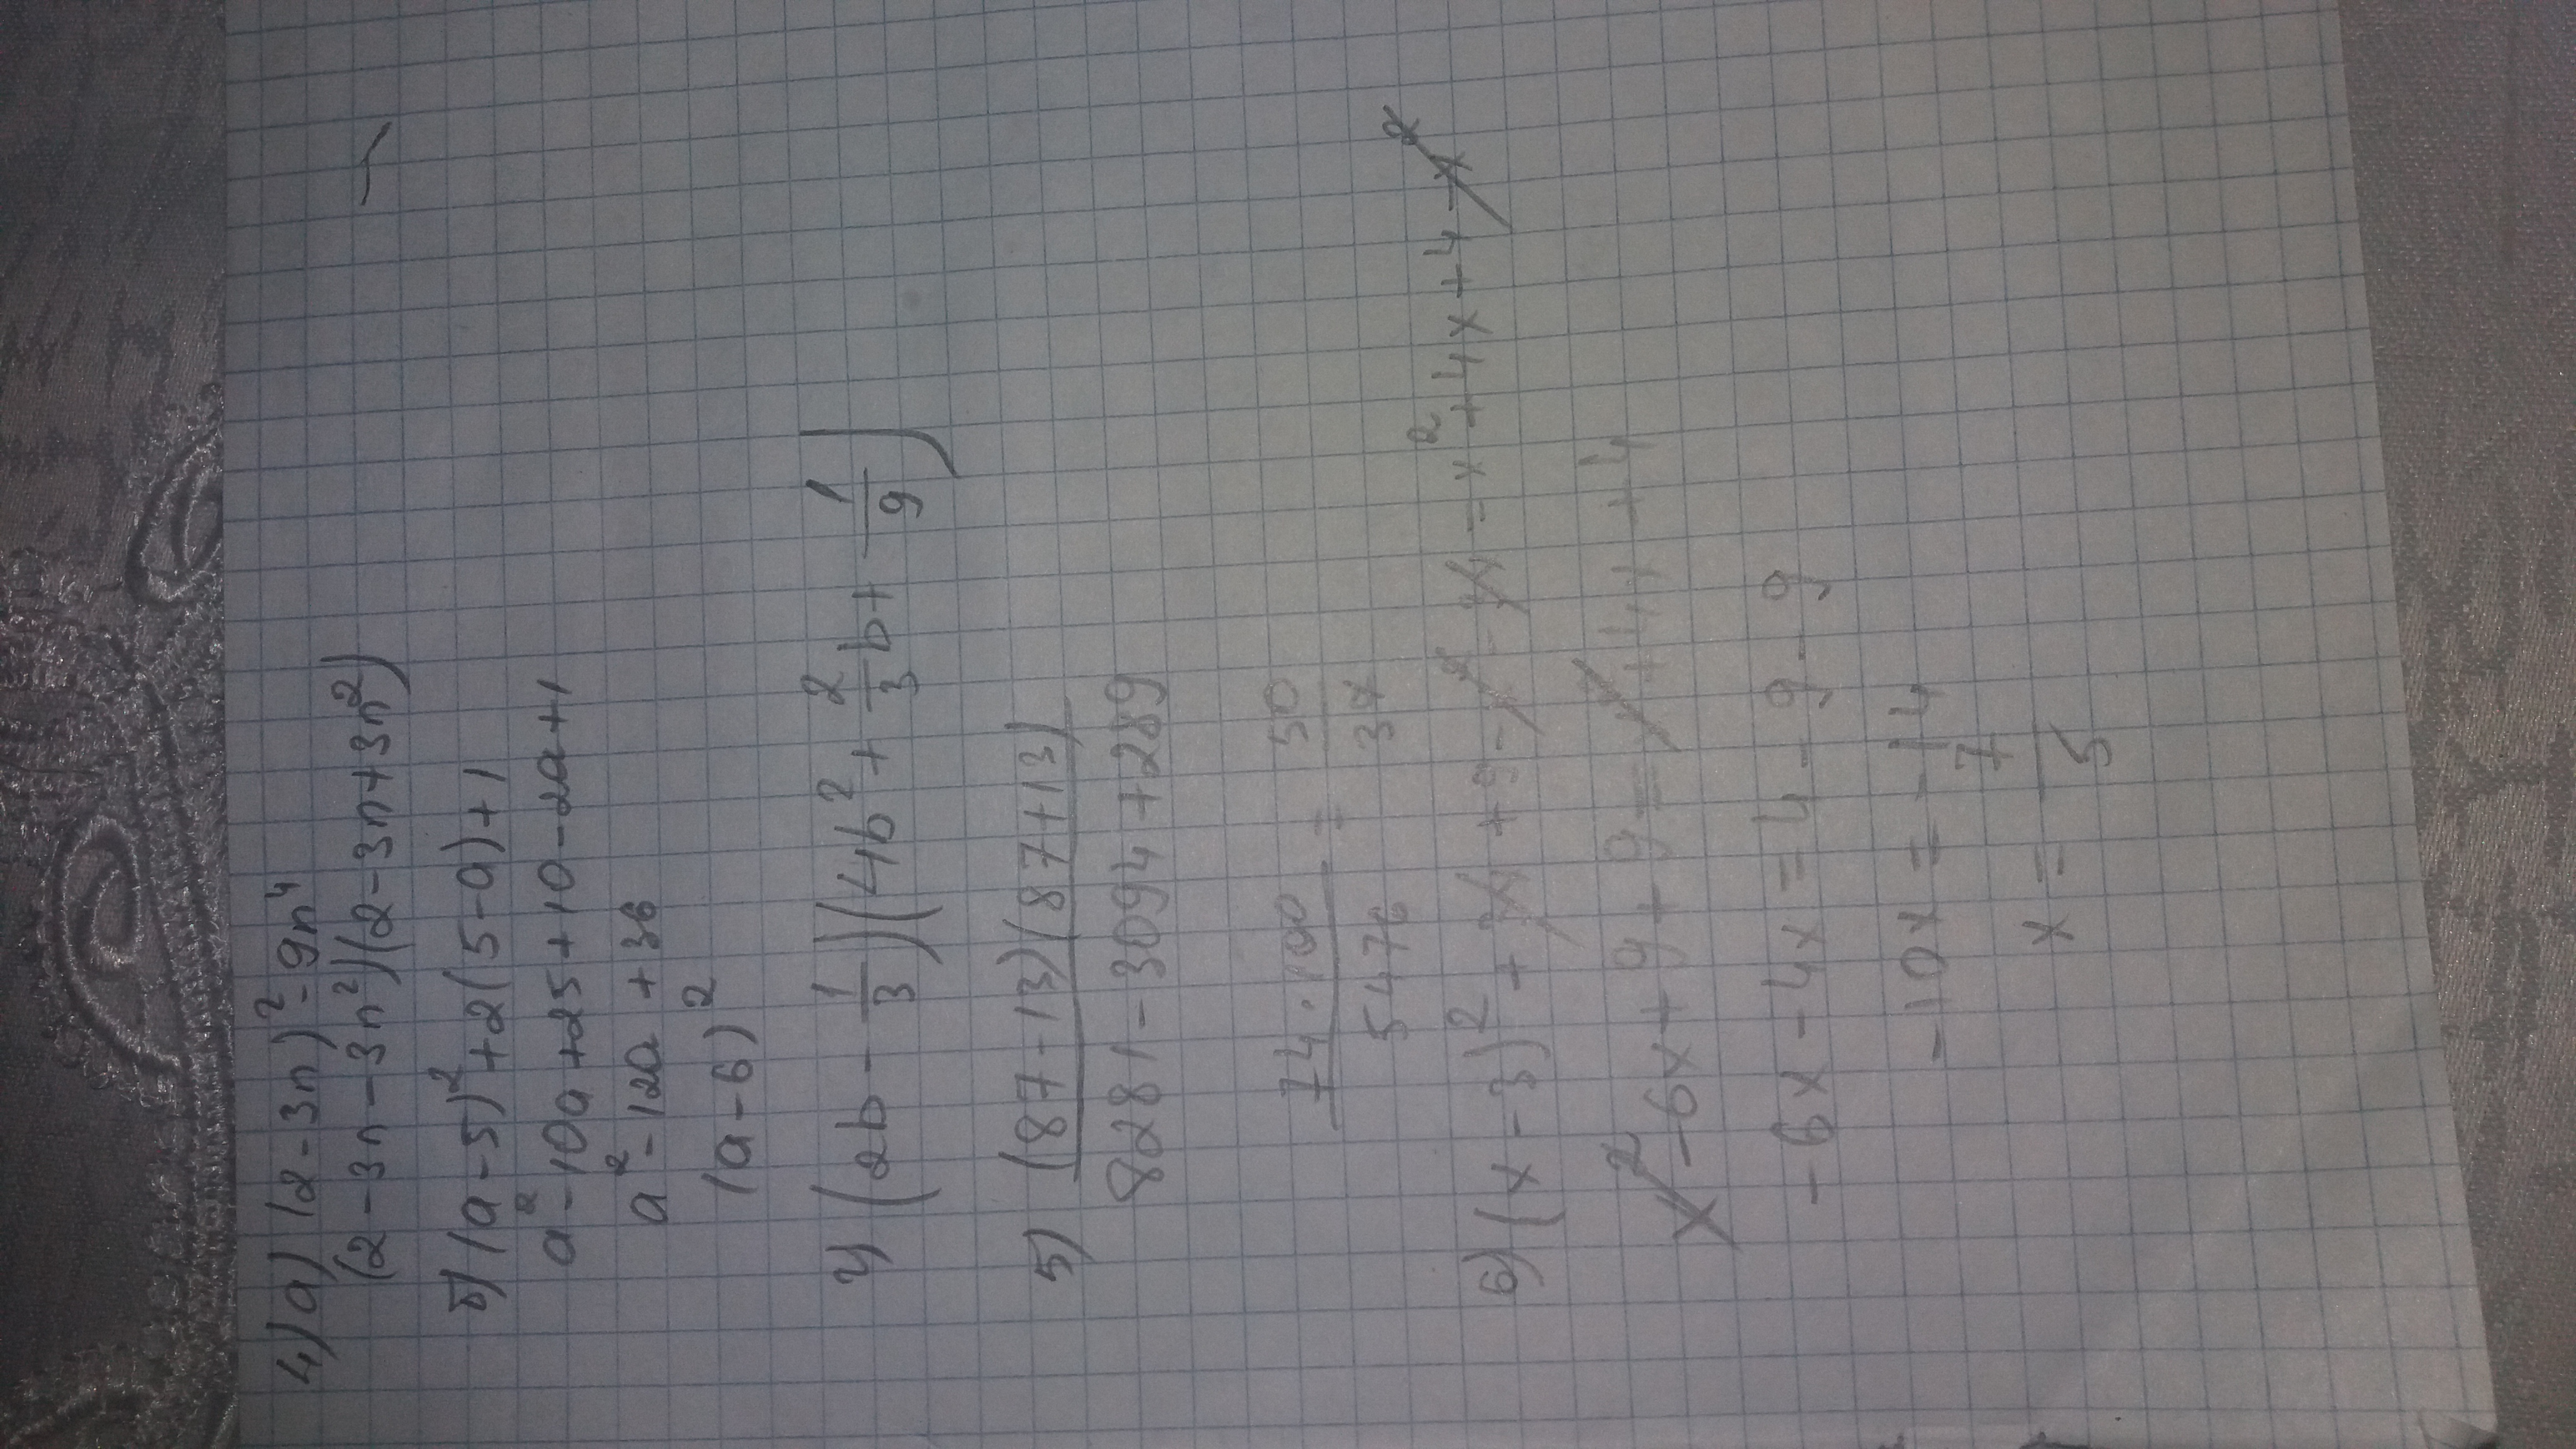 4) а) (2-3n)² - 9n⁴
(2-3n-3n²)(2-3n+3n²)
б) (a-5)²+2(5-a)+1
a²-10a+25+10-2a+1
a²-12a+36
(a-6)²
г) (2b - 1/3)(4b² + 2/3 b + 1/9)
5) (87-13)(87+13)
8281-3094+289
74·100/5476 = 50/37
6) (x-3)² +
= x²+4x+4
x²-6x+9+9 = +4x+4
-6x-4x=4-9-9
-10x = -14
x = 7/5